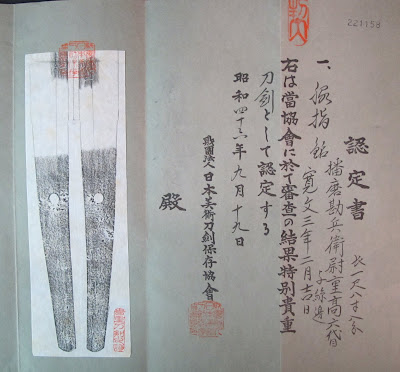 221158
認定書
一、脇指 銘 播磨勘兵衛尉重高六代
長一尺八寸八分
寛文三年二月吉日
右は當協會に於て審査の結果特別貴重
刀劍として認定する
昭和四十三年九月十九日
財團法人日本美術刀劍保存協會
殿